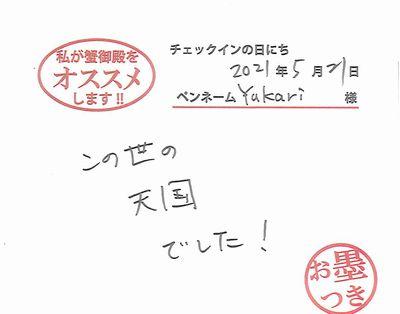 私が蟹御殿を
オススメ
します!!
チェックインの日にち
2021年5月21日
ペンネーム Yukari 様
この世の
天国
でした!
お墨
つき